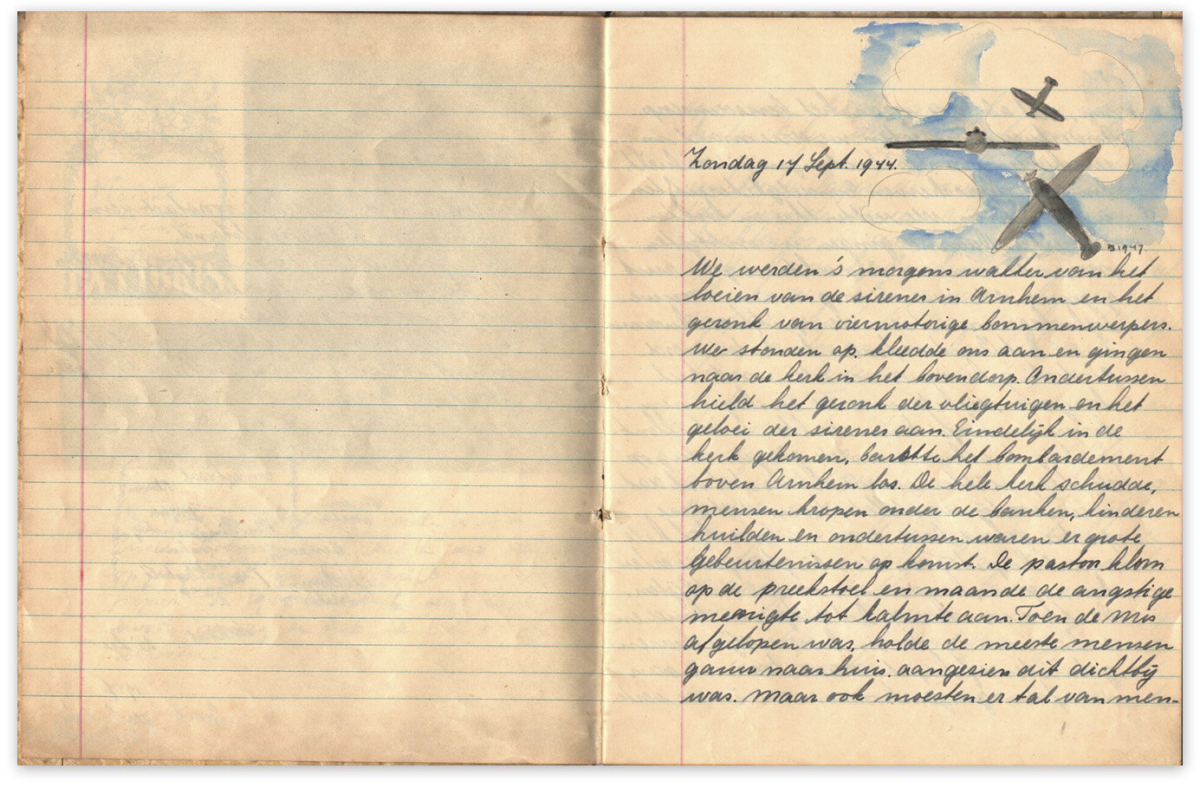 Zondag 17 Sept. 1944.
B 1947
We werden 's morgens wakker van het
loeien van de sirenes in Arnhem en het
geronk van viermotorige bommenwerpers.
We stonden op, kleedde ons aan en gingen
naar de kerk in het bovendorp. Ondertussen
hield het geronk der vliegtuigen en het
geloei der sirenes aan. Eindelijk in de
kerk gekomen, barstte het bombardement
boven Arnhem los. De hele kerk schudde,
mensen kropen onder de banken, kinderen
huilden en ondertussen waren er grote
gebeurtenissen op komst. De pastoor klom
op de preekstoel en maande de angstige
menigte tot kalmte aan. Toen de Mis
afgelopen was, holde de meeste mensen
gauw naar huis, aangezien dit dichtbij
was. Maar ook moesten er tal van men-